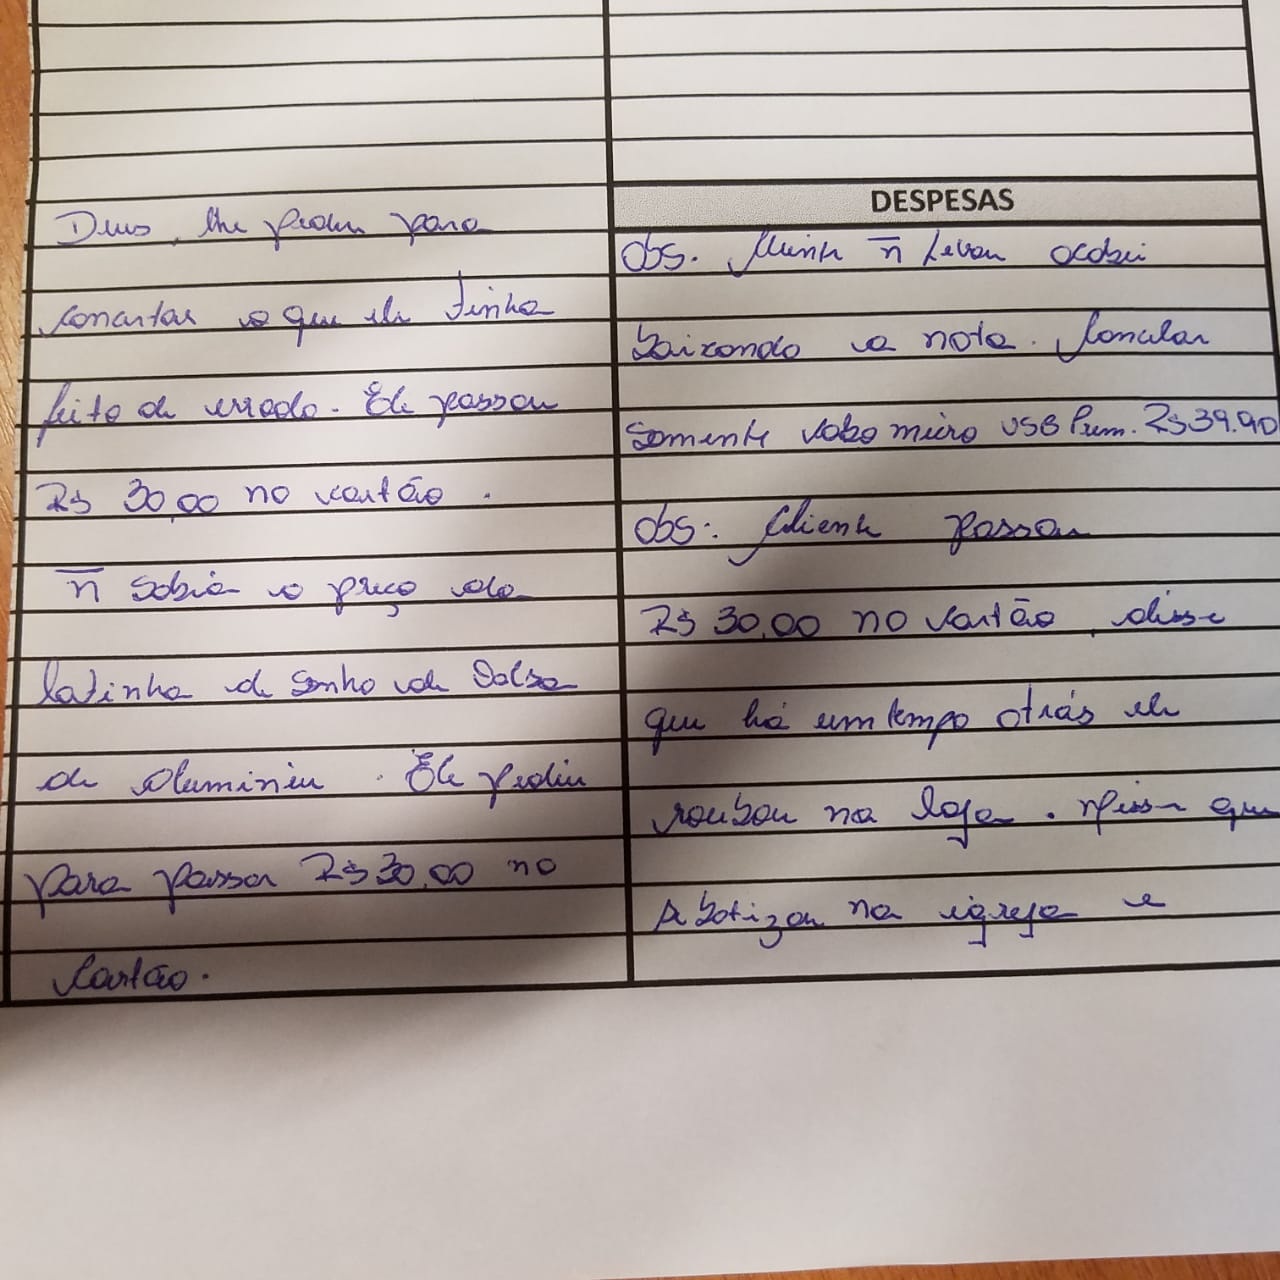 DESPESAS
obs. Cliente n̄ levou acabei
baixando a nota. Cancelar
somente cabo micro USB Prem. R$ 39.90
obs: Cliente passou
R$ 30,00 no cartão, disse
que há um tempo atrás ele
roubou na loja. Disse que
se batizou na igreja e
Deus, lhe pediu para
consertar o que ele tinha
feito de errado. Ele passou
R$ 30,00 no cartão.
n̄ sabia o preço da
latinha de Sonho de Valsa
de aluminiu. Ele pediu
para passar R$ 30,00 no
cartão.